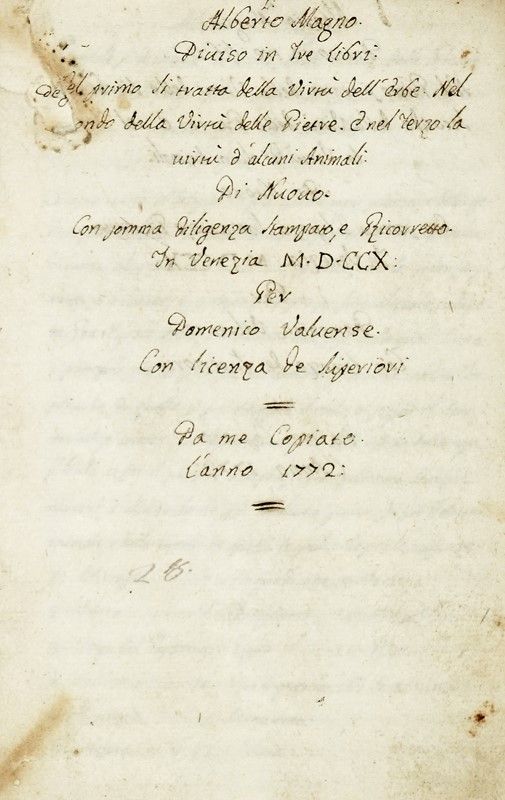 Alberto Magno.
Diviso in Tre libri:
primo si tratta della Virtù dell'Erbe. Nel
ondo della Virtù delle Pietre. E nel Terzo la
virtù d'alcuni Animali.
Di Nuovo.
Con somma diligenza stampato, e Ricorretto.
In Venezia M.D.CCX:
Per
Domenico Valvense.
Con licenza de Superiori
Da me Copiato.
L'anno 1772:
28.